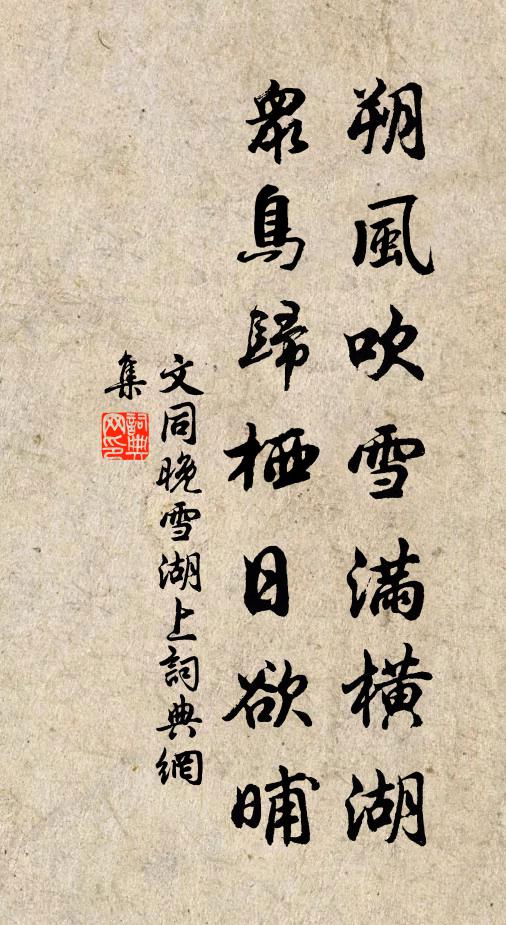 朔風吹雪滿橫湖
眾鳥歸栖日欲晡
文同晚雪湖上詞典網
集
詞典网印